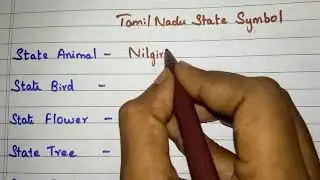 Tamil Nadu State Symbol
State Animal - Nilgir
State Bird -
State Flower -
State Tree -